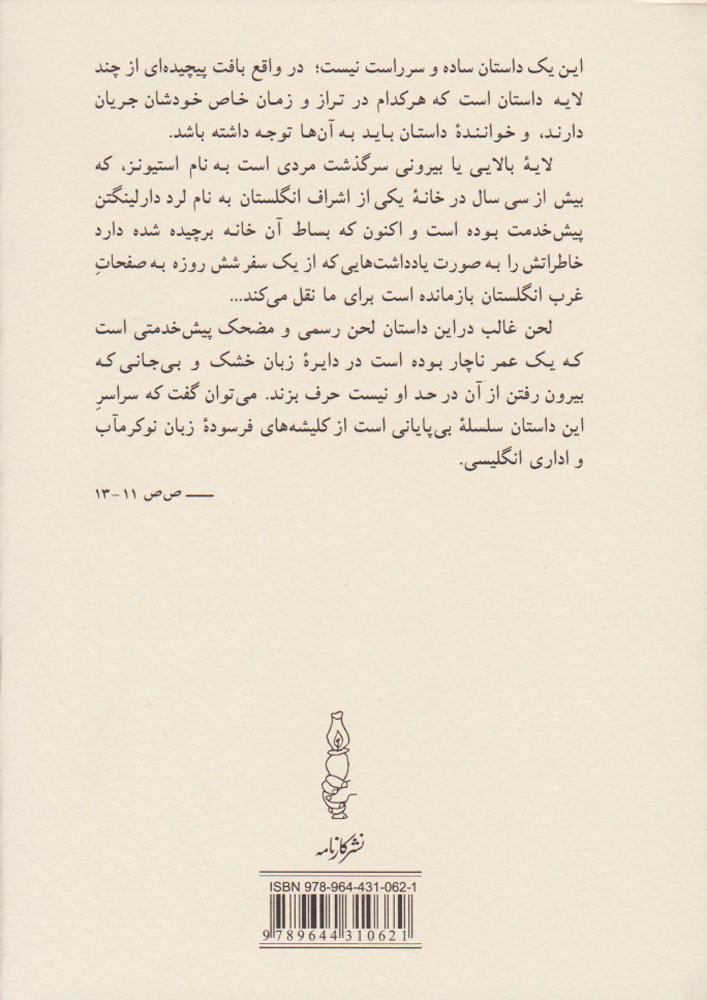 این یک داستان ساده و سرراست نیست؛ در واقع بافت پیچیده‌ای از چند
لایه داستان است که هرکدام در تراز و زمان خاص خودشان جریان
دارند، و خوانندهٔ داستان باید به آن‌ها توجه داشته باشد.
لایهٔ بالایی یا بیرونی سرگذشت مردی است به نام استیونز، که
بیش از سی سال در خانهٔ یکی از اشراف انگلستان به نام لرد دارلینگتن
پیش‌خدمت بوده است و اکنون که بساط آن خانه برچیده شده دارد
خاطراتش را به صورت یادداشت‌هایی که از یک سفر شش روزه به صفحاتِ
غرب انگلستان بازمانده است برای ما نقل می‌کند...
لحن غالب دراین داستان لحن رسمی و مضحک پیش‌خدمتی است
که یک عمر ناچار بوده است در دایرهٔ زبان خشک و بی‌جانی که
بیرون رفتن از آن در حد او نیست حرف بزند. می‌توان گفت که سراسرِ
این داستان سلسلهٔ بی‌پایانی است از کلیشه‌های فرسودهٔ زبان نوکرمآب
و اداری انگلیسی.
— ص‌ص ۱۱-۱۳
نشر کارنامه
ISBN 978-964-431-062-1
9 789644 310621